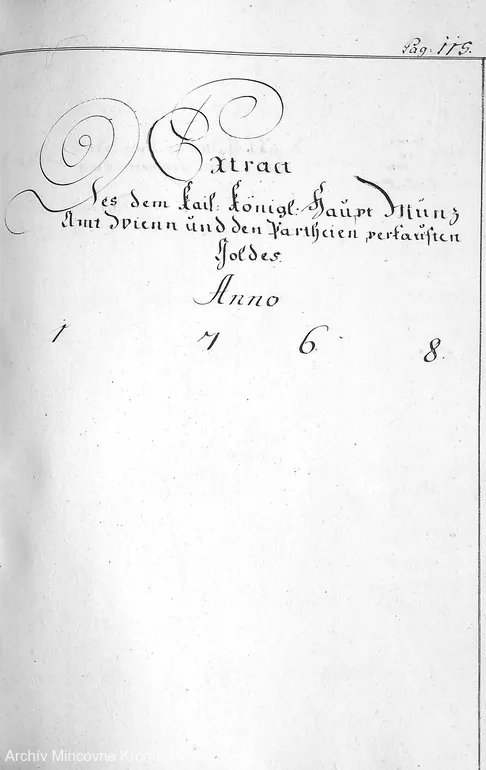 Pag: 115.
Extract
Des dem kaÿl: königl: Haupt Münz
Amt Wienn und den Partheien verkauften
Goldes.
Anno
1 7 6 8.
Archív Mincovne Kremnica